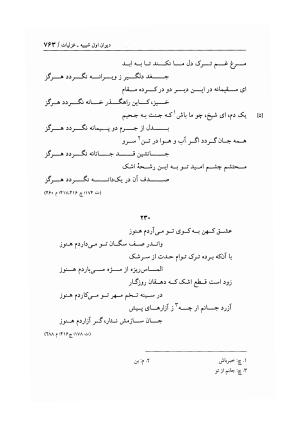 دیوان اول شیبیه ـ غزلیات / ۷۶۳
مرغ غم ترک دل ما نکند تا به ابد
جغد دلگیر ز ویرانه نگردد هرگز
ای مقیمانه در این دیر دو در کرده مقام
خیز، کاین راهگذر خانه نگردد هرگز
یک دم، ای شیخ، چو ما باش۱ که جنت به جحیم
[۵]
بدل از جرم دو پیمانه نگردد هرگز
همه جان گردد اگر آب و هوا در تن۲ سرو
جانشین قد جانانه نگردد هرگز
محتشم چشم امید تو به این رشحهٔ اشک
صدف آن در یکدانه نگردد هرگز
۲۳۰
عشق کهن به کوی تو می‌آردم هنوز
واندر صف سگان تو می‌داردم هنوز
با آنکه برده ترک توام حدت از سرشک
الماس‌ریزه از مژه می‌باردم هنوز
زود است قطع اشک که دهقان روزگار
در سینه تخم مهر تو می‌کاردم هنوز
آزرد جانم ار چه۳ ز آزارهای پیش
جان سازمش نثار، گر آزاردم هنوز
۱. ج: خبرباش
۲. م: بن
۳. ج: جانم از تو